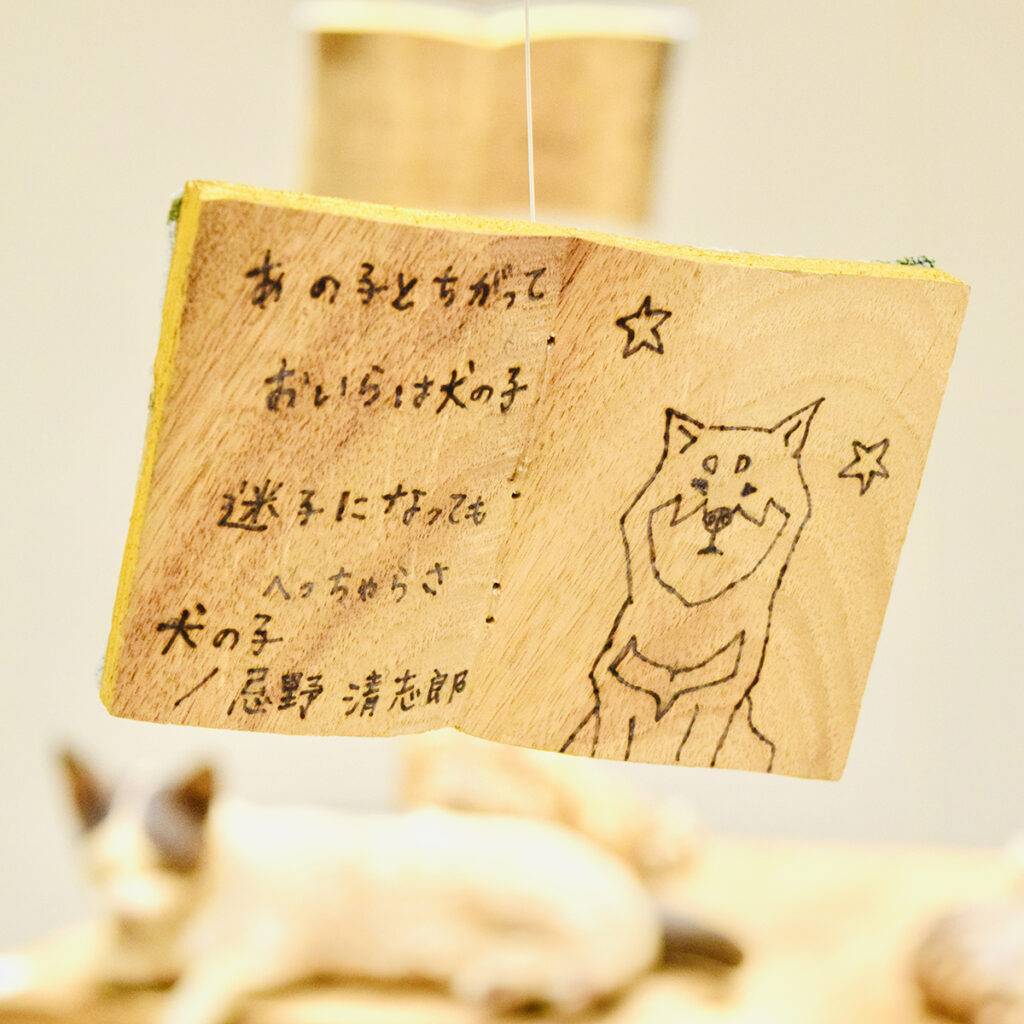 あの子とちがって
おいらは犬の子
迷子になっても
へっちゃらさ
犬の子
／忌野 清志郎